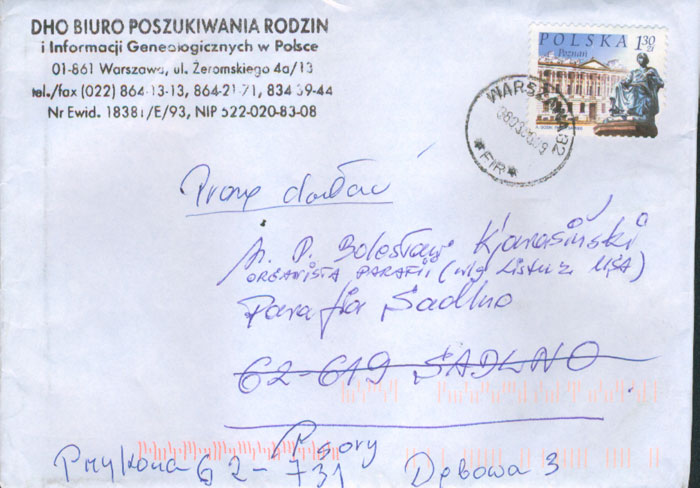 DHO BIURO POSZUKIWANIA RODZIN
i Informacji Geneologicznych w Polsce
01-861 Warszawa, ul. Żeromskiego 4a/13
tel./fax (022) 864-13-13, 864-21-71, 834 39-44
Nr Ewid. 18381/E/93, NIP 522-020-83-08
POLSKA 1,30 zł
Poznań
WARSZAWA 82
*FIR*
Proszę
A. P. Bolesław Kjarasiński
ORGANISTA PARAFII (wg listu z USA)
Parafia Sadlno
62-619 SADLNO
Psary
Przykona 62-731 Dębowa 3